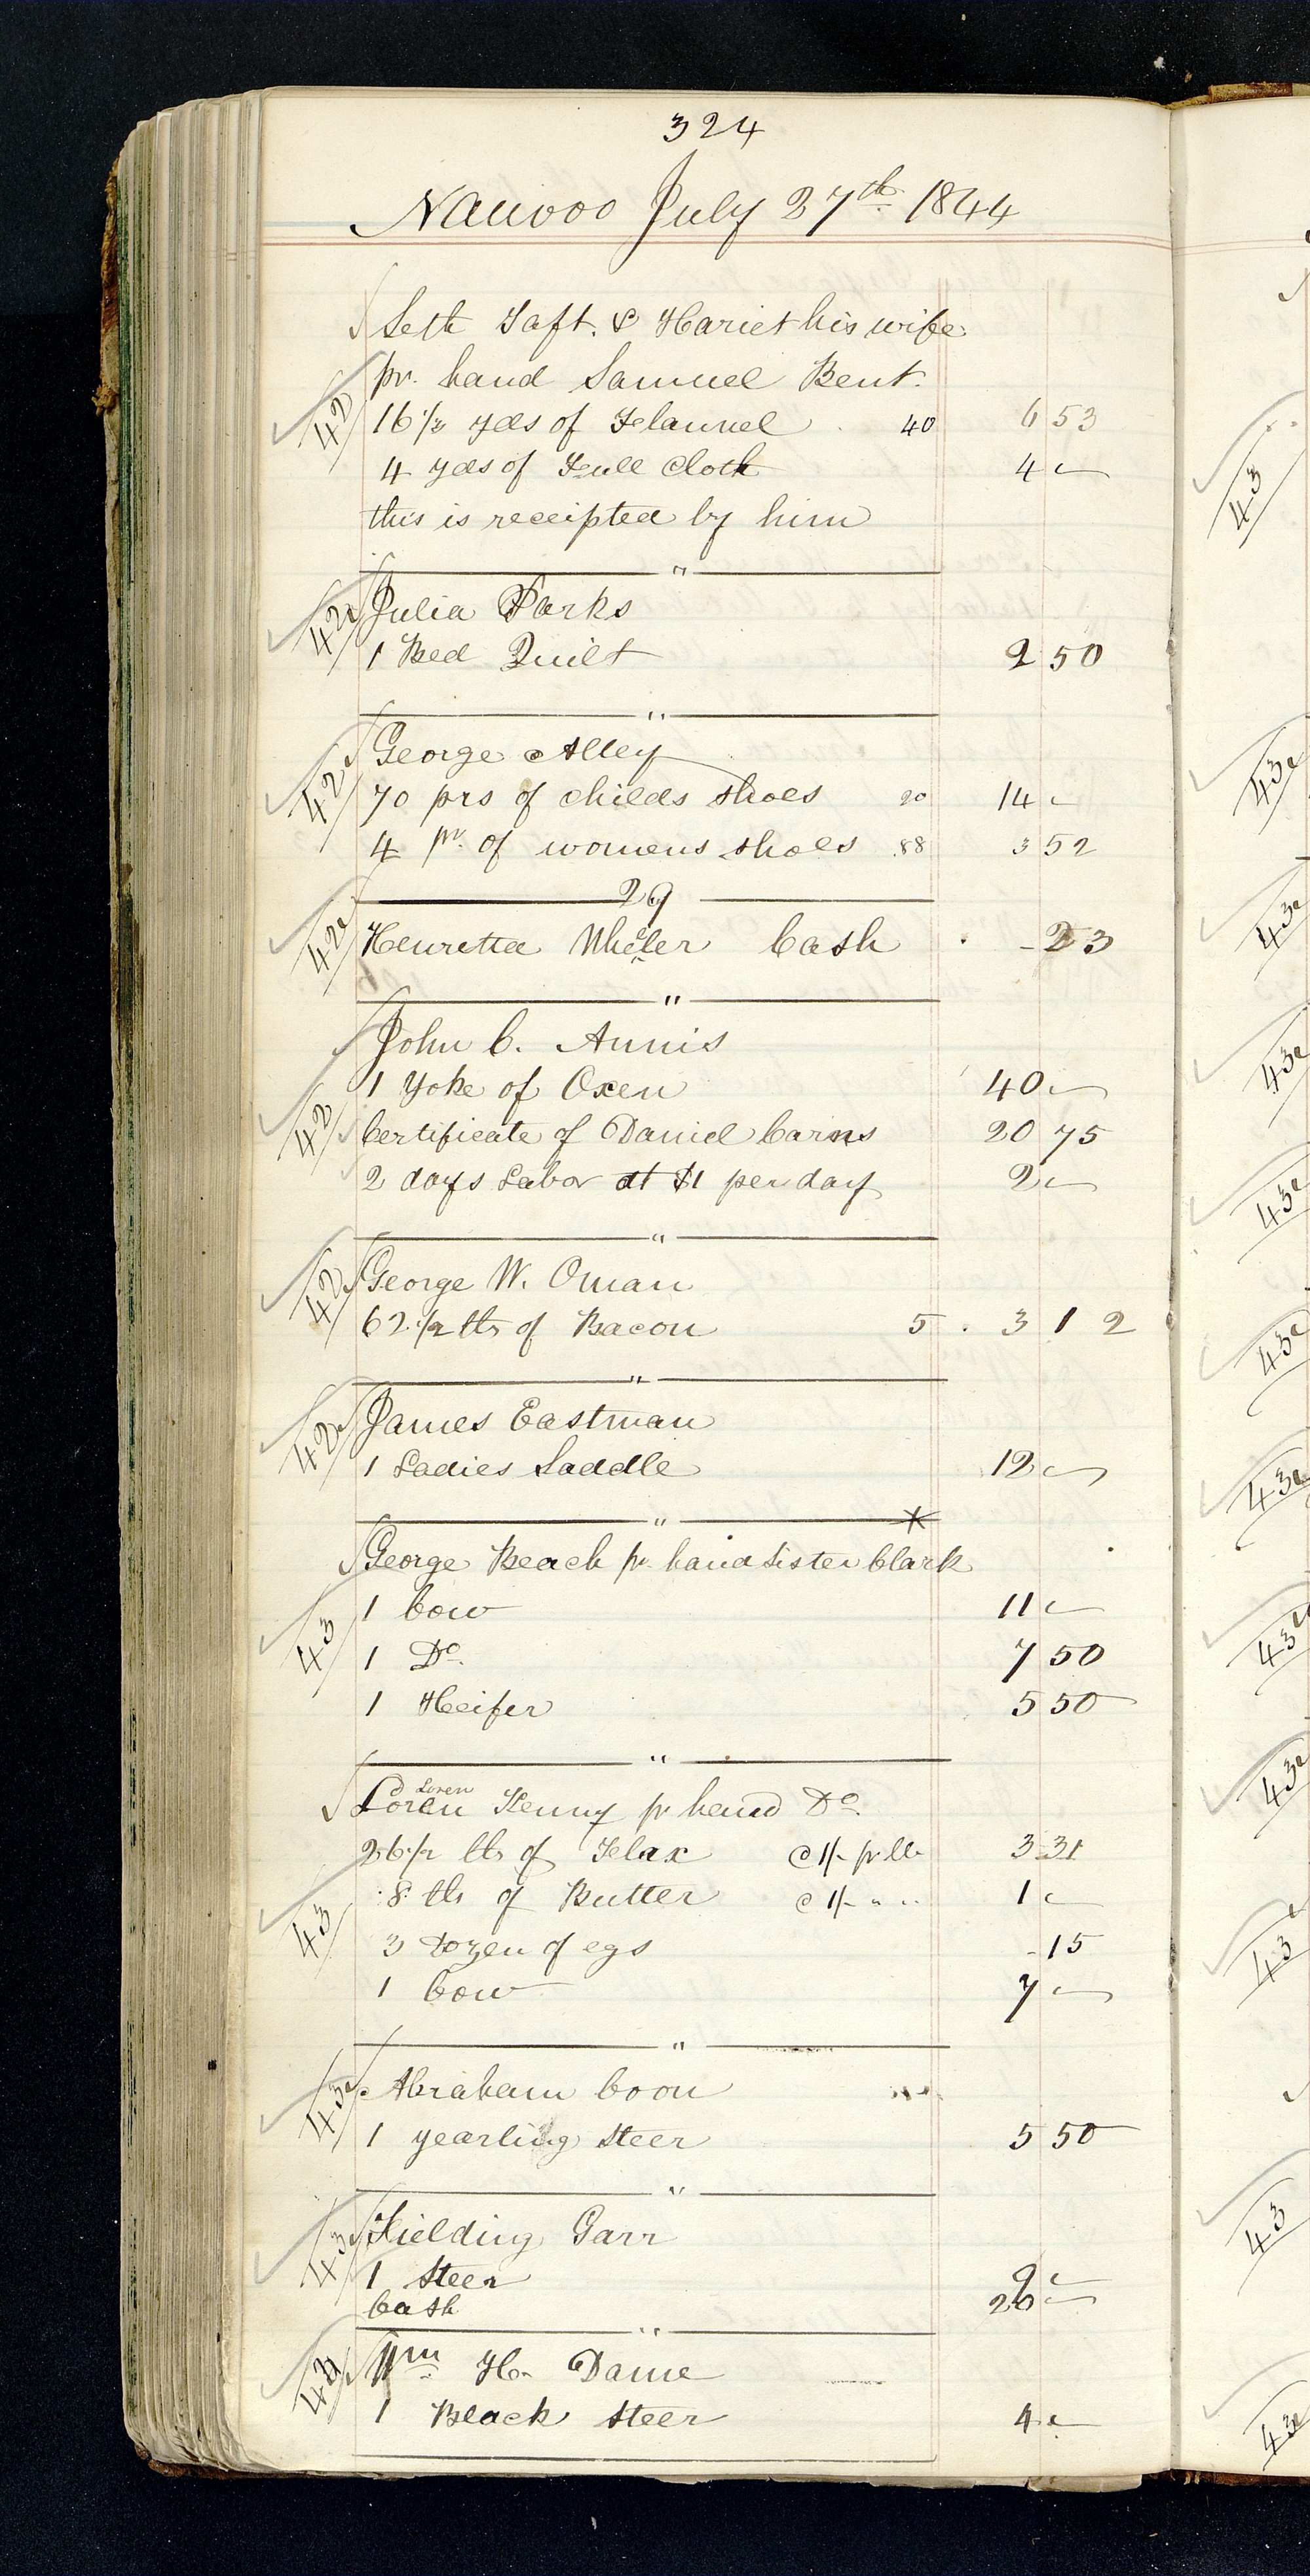 324
Nauvoo July 27th 1844
Seth Taft. & Hariet his wife
pr. hand Samuel Bent.
42 16 1/3 yds of Flannel 40 6 53
4 yds of Full Cloth 4 —
this is receipted by him
"
42 Julia Parks
1 Bed Quilt 2 50
"
42 George Alley
70 prs of childs shoes 20 14 —
4 pr. of womens shoes .88 3 52
29
42 Henretta Wheler Cash - 23
"
John C. Annis
1 Yoke of Oxen 40 —
42 Certificate of Daniel Carns 20 75
2 days Labor at $1 per day 2 —
"
42 George W. Oman
62 1/2 lbs of Bacon 5 3 12
"
42 James Eastman
1 Ladies Saddle 12 —
"
George Beach pr hand Sister Clark
1 Cow 11 —
43 1 Do. 7 50
1 Heifer 5 50
"
Loren
Loren Kenny pr hand Do.
26 1/2 lbs of Flax @ 1/- pr lb 3 31
8 lbs of Butter @ 1/- " " 1 —
43 3 dozen of egs - 15
1 Cow 7 —
"
43 Abraham Coon
1 yearling Steer 5 50
"
43 Fielding Garr
1 Steer 9 —
Cash 20 —
"
43 Wm H. Dame
1 Black Steer 4 —
43
43
43
43
43
43
43
43
43
43
43
43